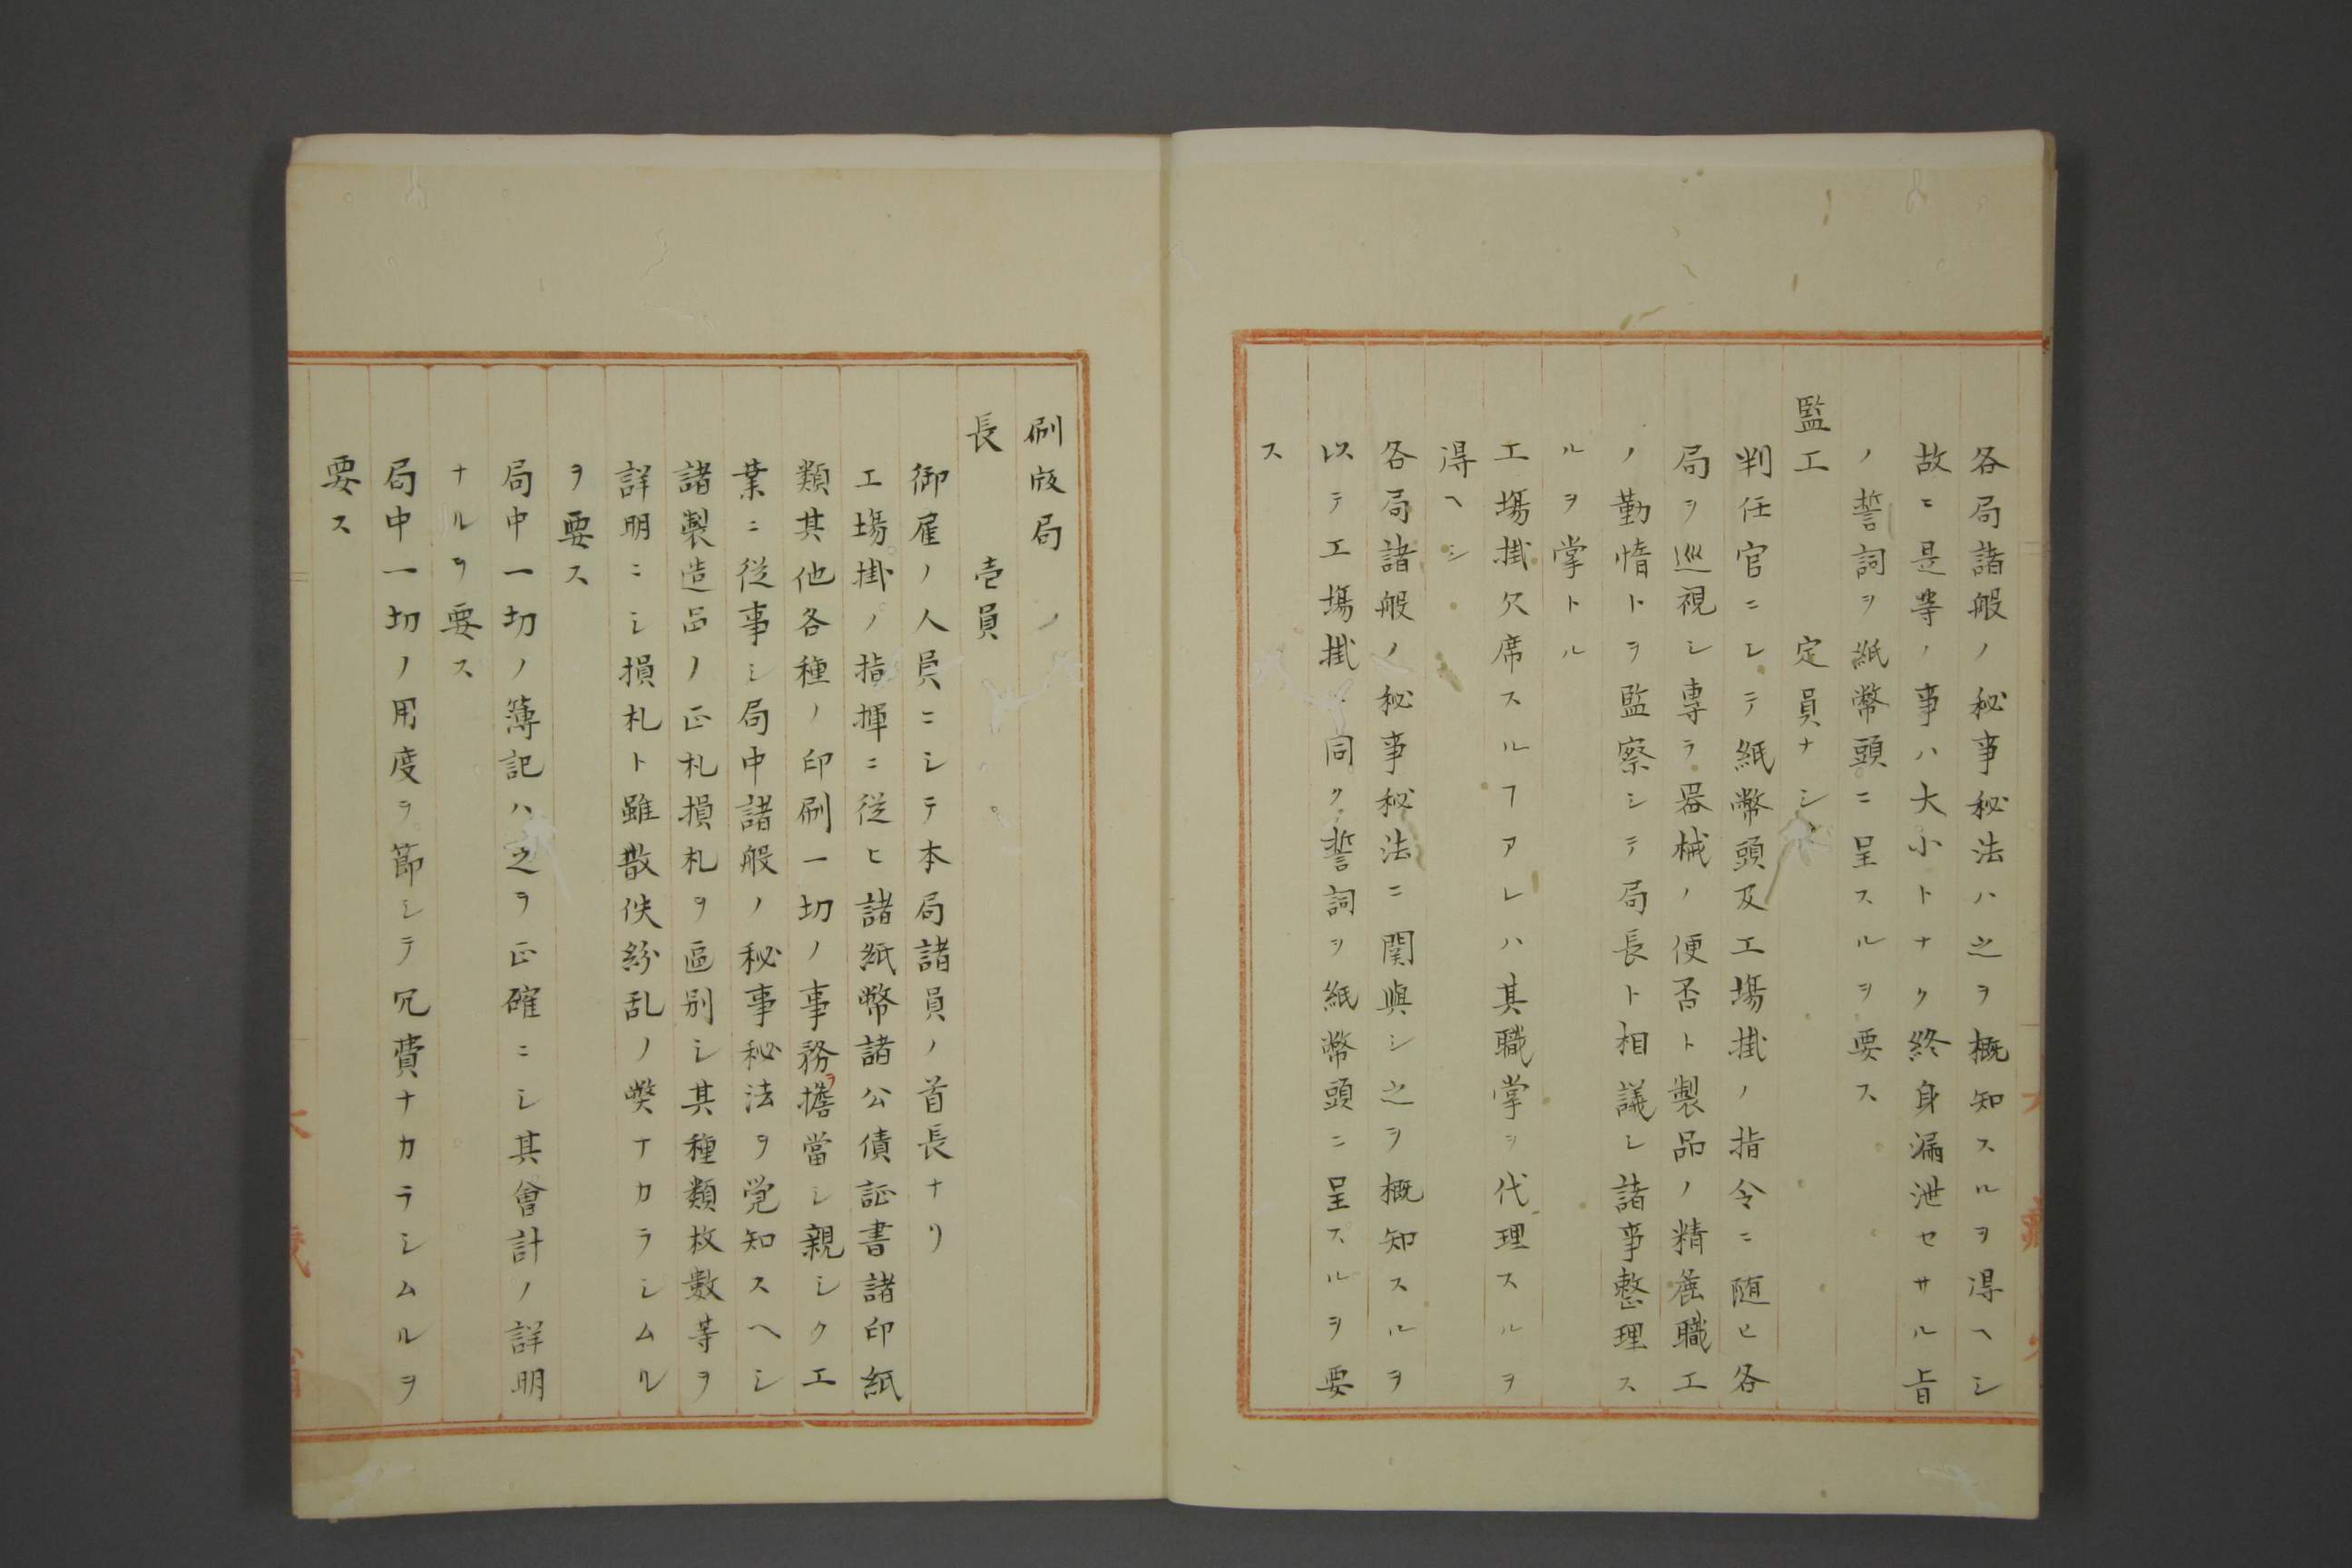 各局諸般ノ秘事秘法ハ之ヲ概知スルヲ得ヘシ
故ニ是等ノ事ハ大小トナク終身漏泄セサル旨
ノ誓詞ヲ紙幣頭ニ呈スルヲ要ス
監工　　定員ナシ
判任官ニシテ紙幣頭及工塲掛ノ指令ニ随ヒ各
局ヲ巡視シ専ラ器械ノ便否ト製品ノ精麁職工
ノ勤惰トヲ監察シテ局長ト相議シ諸事整理ス
ルヲ掌トル
工塲掛欠席スルヿアレハ其職掌ヲ代理スルヲ
得ヘシ
各局諸般ノ秘事秘法ニ関與シ之ヲ概知スルヲ
以テ工塲掛同ク誓詞ヲ紙幣頭ニ呈スルヲ要
ス
刷版局ノ
長　　壱員
御雇ノ人員ニシテ本局諸員ノ首長ナリ
工塲掛ノ指揮ニ従ヒ諸紙幣諸公債証書諸印紙
類其他各種ノ印刷一切ノ事務ヲ擔當シ親シク工
業ニ従事シ局中諸般ノ秘事秘法ヲ覚知スヘシ
諸製造品ノ正札損札ヲ區別シ其種類枚數等ヲ
詳明ニシ損札ト雖散佚紛乱ノ獘ナカラシムル
ヲ要ス
局中一切ノ簿記ハ之ヲ正確ニシ其會計ノ詳明
ナルヲ要ス
局中一切ノ用度ヲ節シテ冗費ナカラシムルヲ
要ス